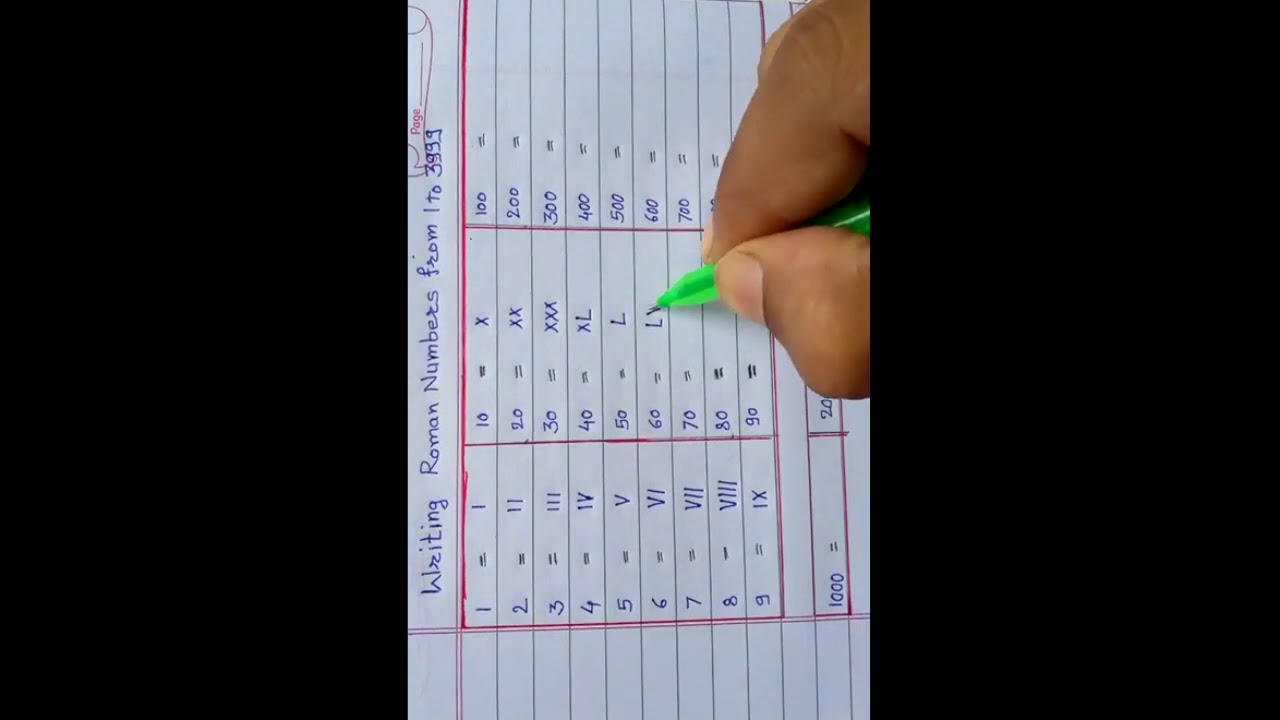 Page
Writing Roman Numbers from 1 to 3999
1 = I 10 = X 100 =
2 = II 20 = XX 200 =
3 = III 30 = XXX 300 =
4 = IV 40 = XL 400 =
5 = V 50 = L 500 =
6 = VI 60 = L 600 =
7 = VII 70 = 700 =
8 – VIII 80 = =
9 = IX 90 =
1000 = 20